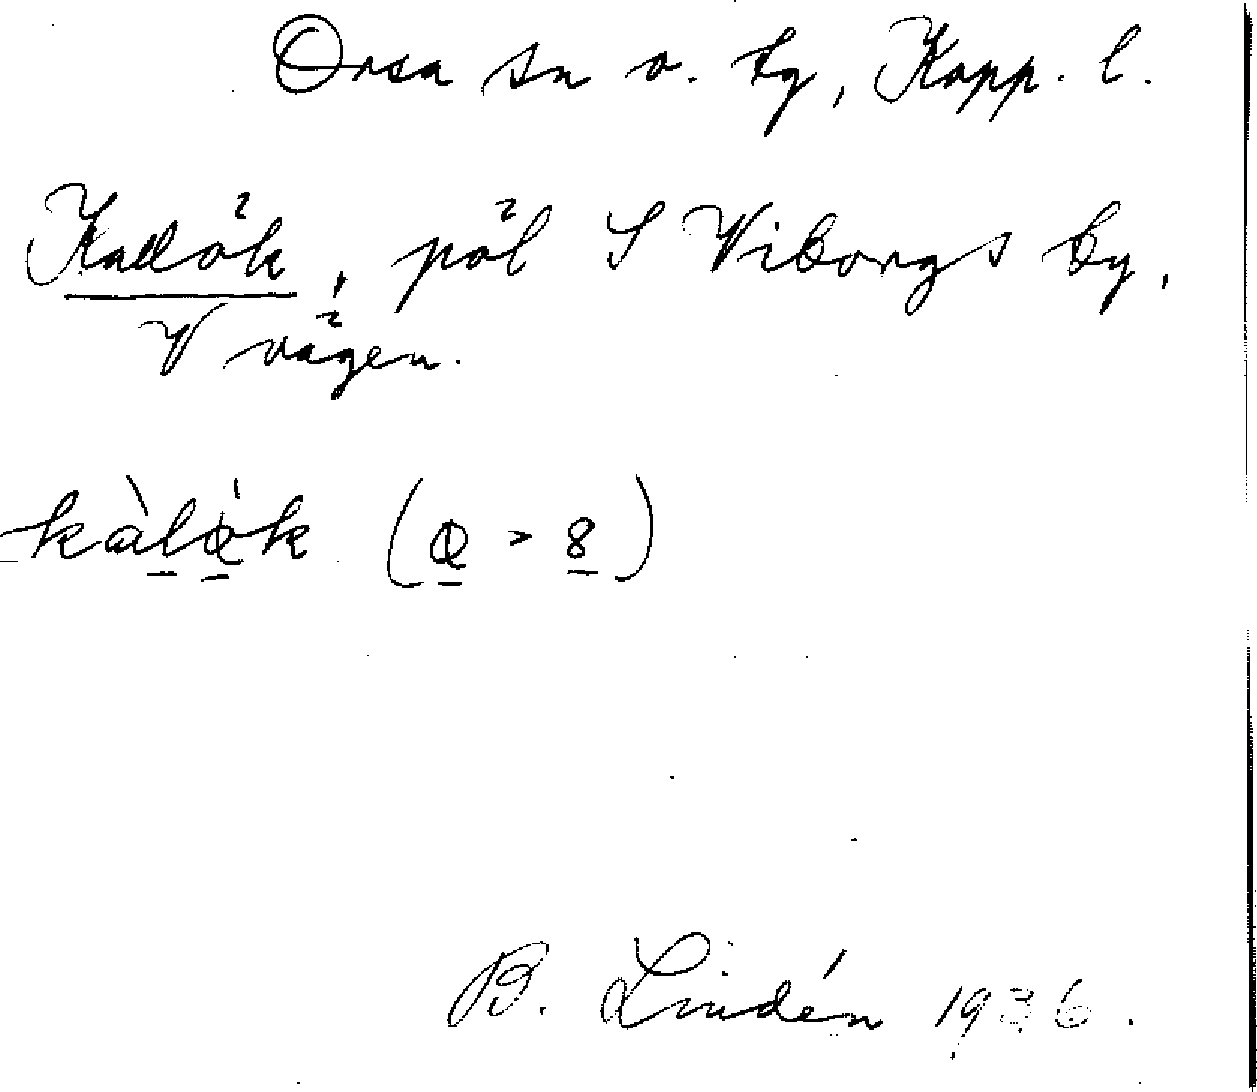 Orsa sn o. by, Kopp. l.
Kallök, pöl S Viborgs by,
V vägen.
B. Lindén 1936.